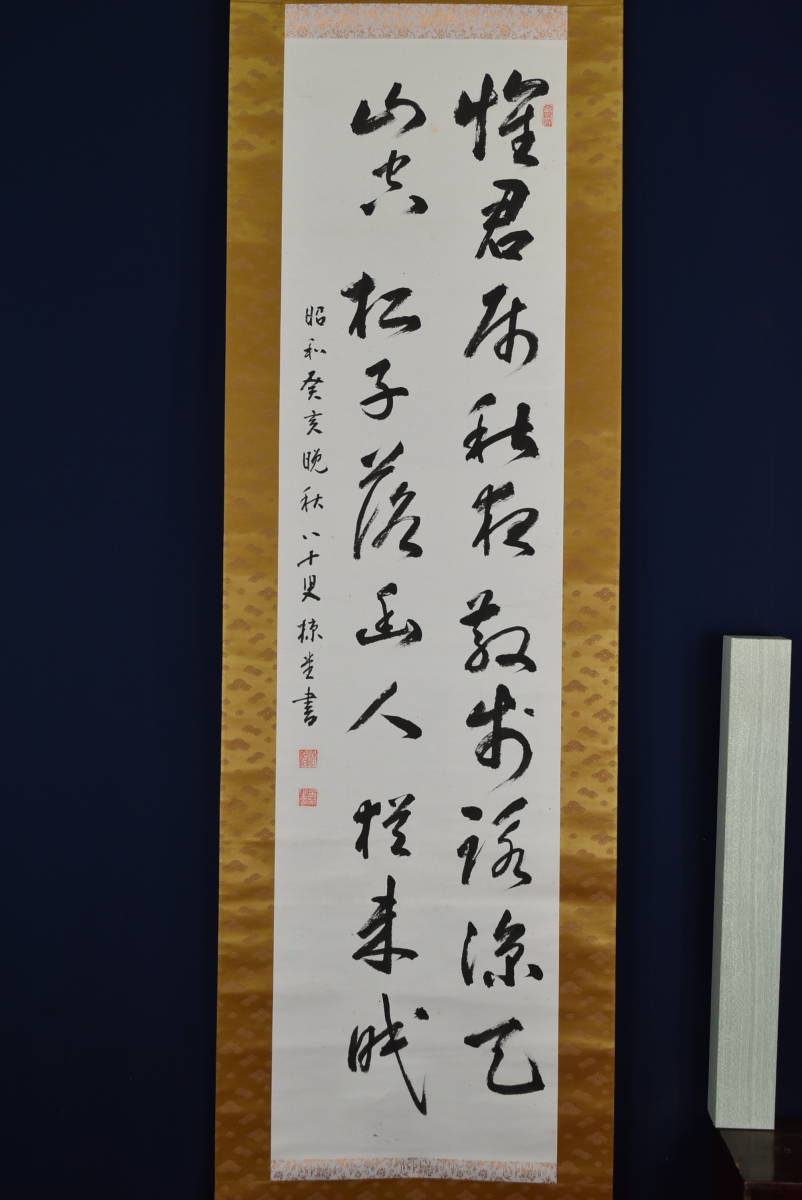 懐君属秋夜散歩詠涼天
山空松子落幽人応未眠
昭和癸亥晩秋八十叟椋堂書